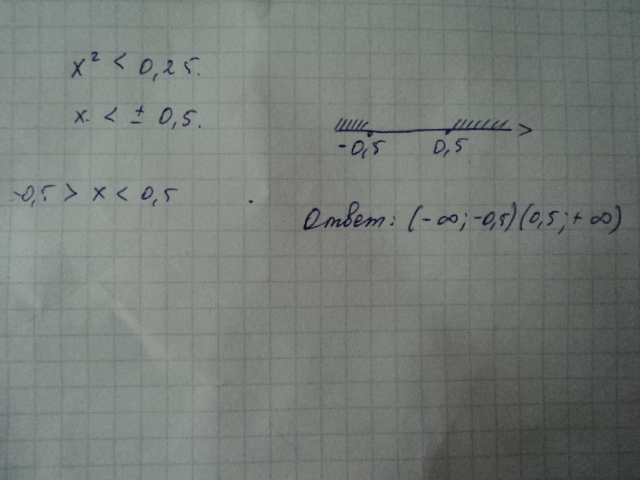 x² < 0,25.
x. < ± 0,5.
-0,5 > x < 0,5
-0,5 0,5
Ответ: (-∞; -0,5)(0,5; +∞)